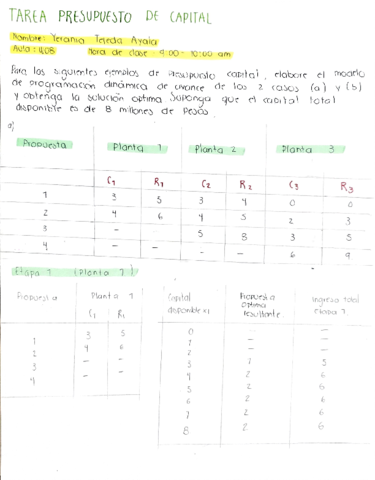 TAREA PRESUPUESTO DE CAPITAL
Nombre: Yerania Tejeda Ayala
Aula: 4108 Hora de clase 9:00 - 10:00 am
Para los siguientes ejemplos de Presupuesto capital, elabore el modelo
de programación dinámica de avance de los 2 casos (a) y (b)
y obtenga la solución optima Suponga que el capital total
disponible es de 8 millones de pesos
a)
Propuesta Planta 1 Planta 2 Planta 3
C1 R1 C2 R2 C3 R3
1 3 5 3 4 0 0
2 4 6 4 5 2 3
3 - - 5 8 3 5
4 - - - - 6 9
Etapa 1 (Planta 1)
Propuesta Planta 1
C1 R1
1 3 5
2 4 6
3 - -
4 - -
Capital disponible x1 Propuesta optima resultante Ingreso total etapa 1
0 - -
1 - -
2 - -
3 1 5
4 2 6
5 2 6
6 2 6
7 2 6
8 2 6